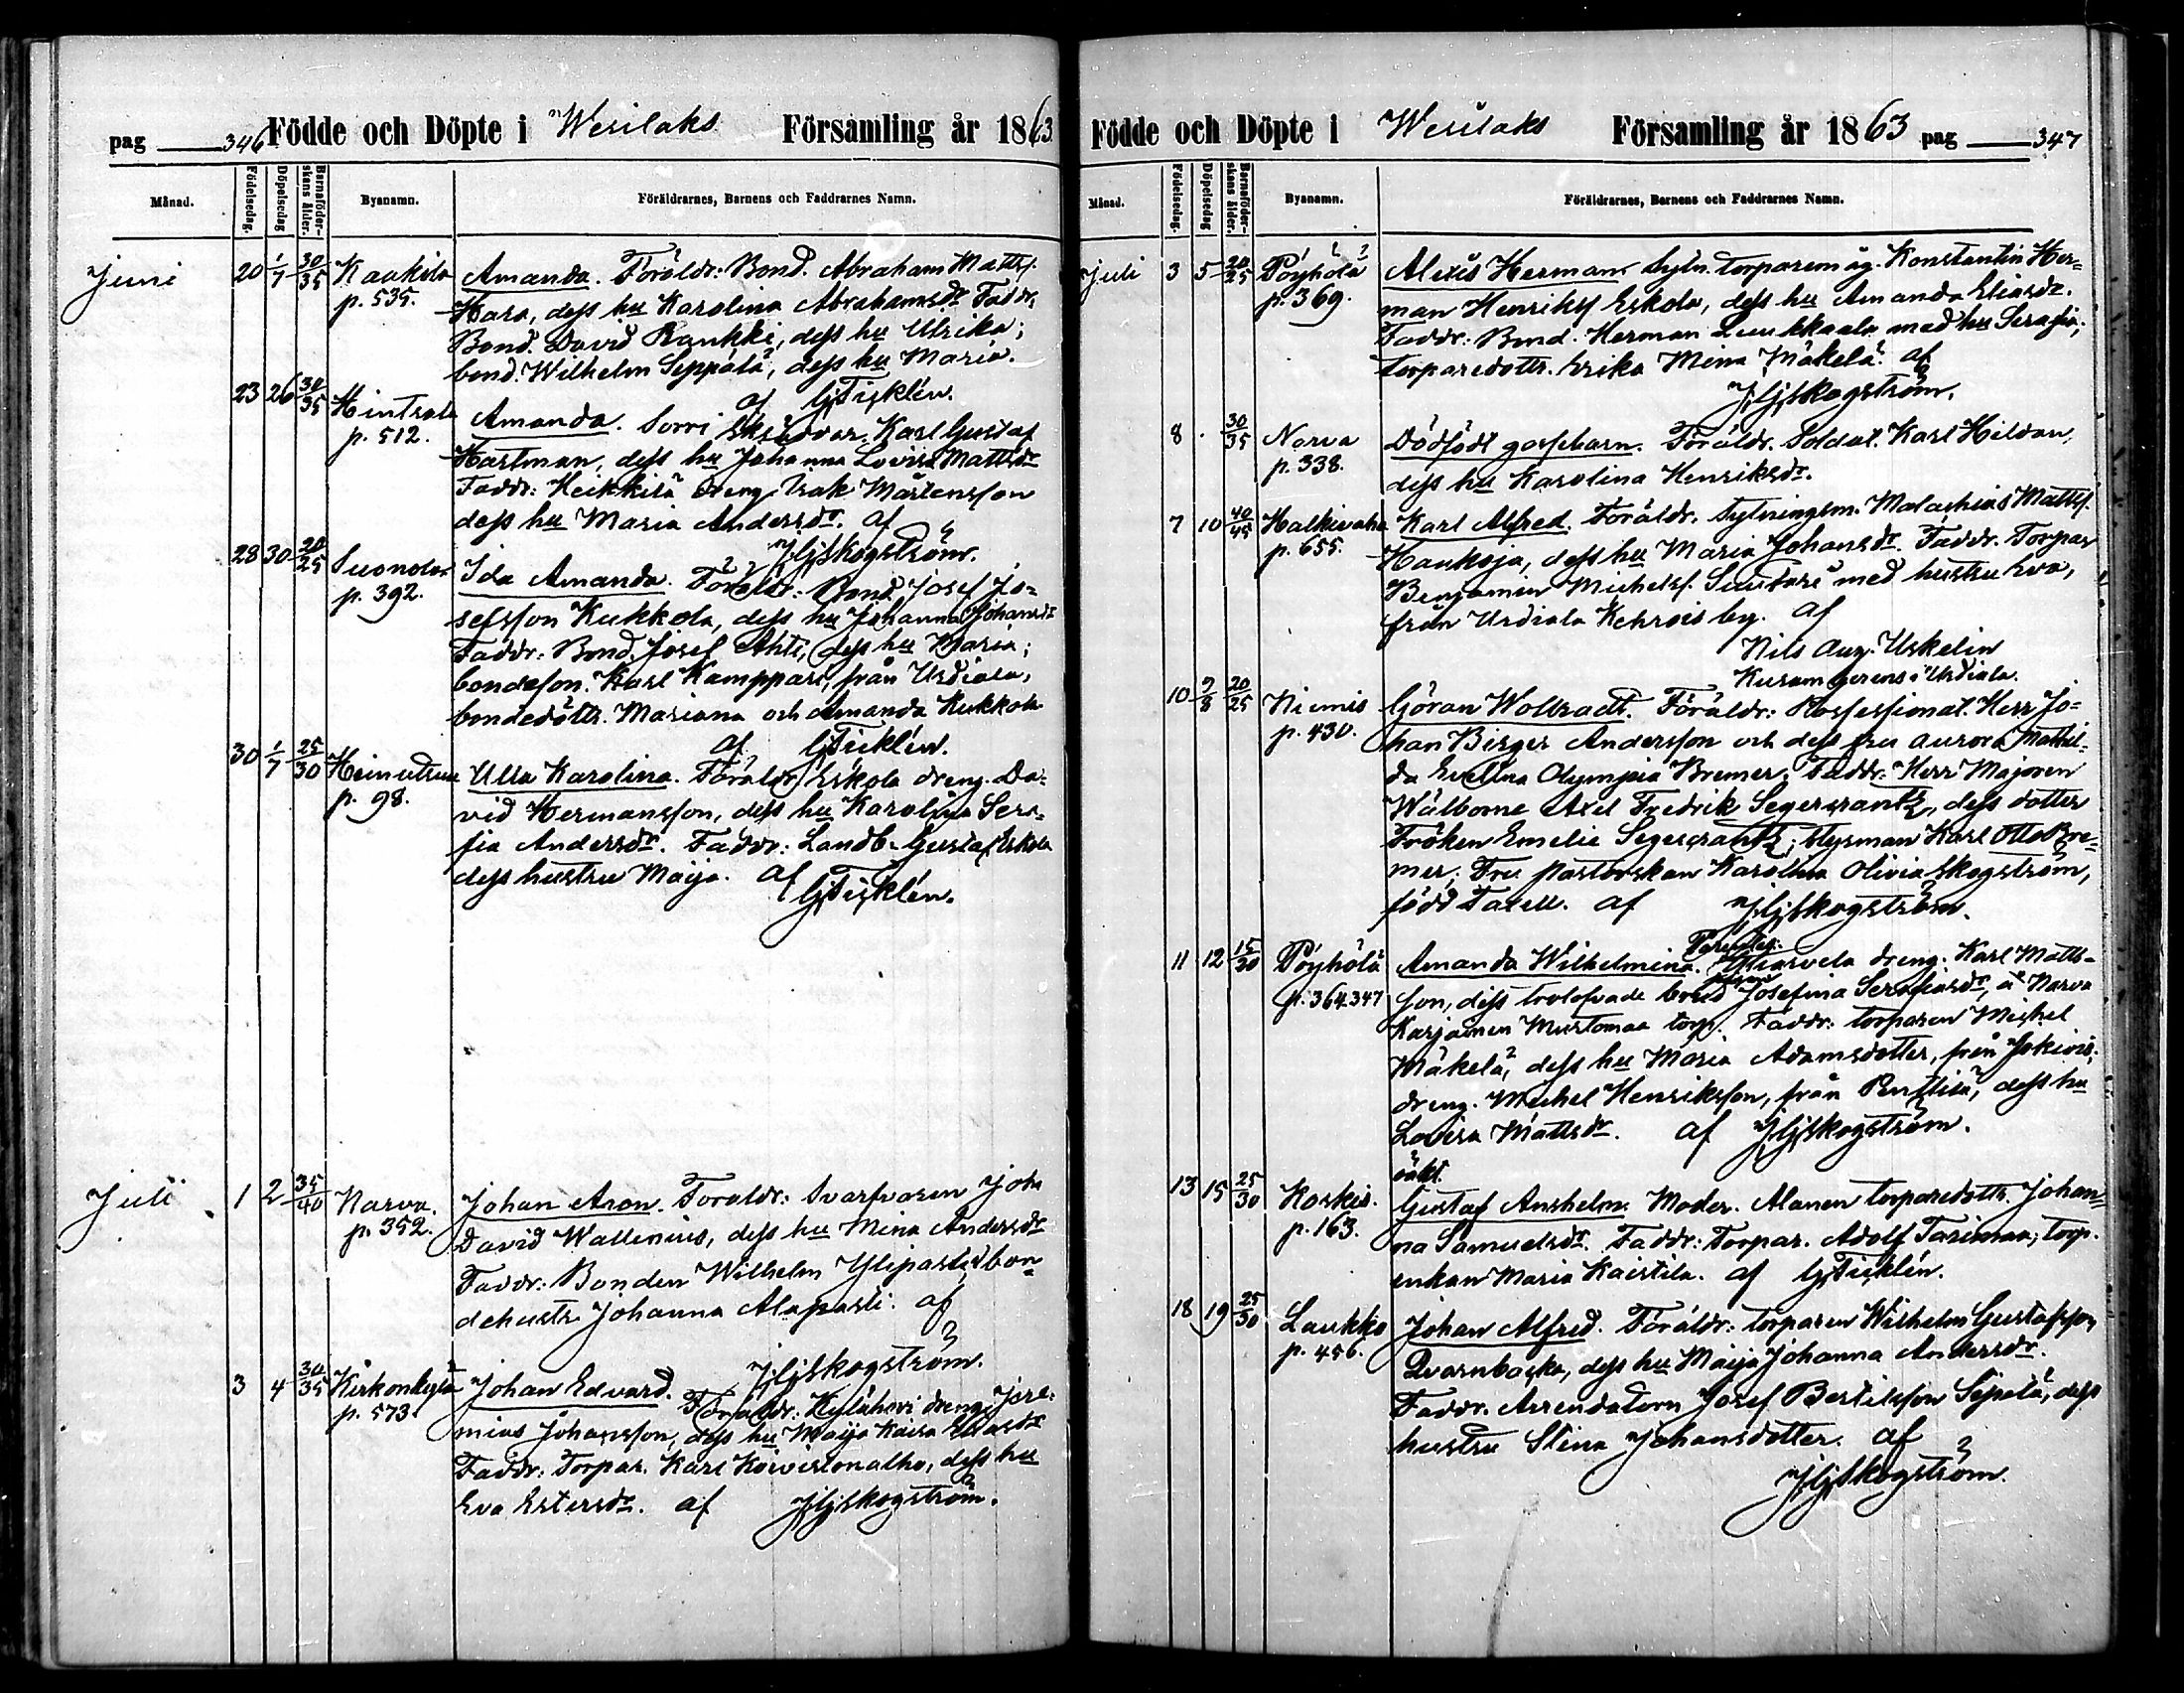 pag 346 Födde och Döpte i Wesilaks Församling år 1863.
Månad. Födelsedag. Döpelsedag Barnaföderskans ålder. Byanamn. Föräldrarnes, Barnens och Faddrarnes Namn.
Juni 20 1/7 30/35 Kaakila Amanda. Föräldr: Bond. Abraham Mattsf.
p. 535. Hara, dess hu Karolina Abrahamsdr. Faddr.
Bond. David Raukki, dess hu Ulrika;
bond. Wilhelm Seppälä, dess hu Maria.
af GFicklén.
23 26 30/35 Hinsala Amanda. Sorri Karl Gustaf
p. 512. Hartman, dess hu Johanna Lovisa Mattsdr
Faddr: Heikkilä dreng Isak Mårtensson
dess hu Maria Andersdr. af
JGSkogström.
28 30 20/25 Suonola Ida Amanda. Föräldr. Bond. Josef Jo-
p. 392. sefsson Kukkola, dess hu Johanna Johansdr
Faddr: Bond. Josef Ahti, dess hu Maria;
bondeson. Karl Kamppari, från Urdiala,
bondedöttr. Mariana och Amanda Kukkola
af GFicklén.
30 1/7 25/30 Heinutsuu Ulla Karolina. Föräldr Eskola dreng. Da-
p. 98. vid Hermansson, dess hu Karolina Sera-
fia Andersdr. Faddr: Landb. Gustaf Eskola
dess hustru Maija. af
GFicklén.
Juli 1 2 35/40 Narva. Johan Aron. Foraldr: Svarfvaren Joh
p. 352. David Wallenius, dess hu Mina Andersdr
Faddr: Bonden Wilhelm Ylipasti, bon-
dehustr Johanna Alapasti. af
JGSkogström.
3 4 30/35 Kirkonkylä Johan Edvard. Föraldr: Kylähovi dreng Jere-
p. 573. mias Johansson, dess hu Maija Kaisa Eliasdr
Faddr: Torpar. Karl Koivistonalho, dess hu
Eva Estersdr. af JGSkogström.
Födde och Döpte i Wesilaks Församling år 1863 pag 347
Månad. Födelsedag. Döpelsedag Barnaföderskans ålder. Byanamn. Föräldrarnes, Barnens och Faddrarnes Namn.
Juli 3 5 20/25 Pöyhölä Alexis Herman Sytn. torparemåg. Konstantin Her-
p. 369. man Henriksf Eskola, dess hu Amanda Eliasdr.
Faddr: Bond. Herman Luukkaala med hu Serafia;
torparedottr. Erika Mena Mäkelä. af
JGSkogström.
8 . 30/35 Narva Dödfödt gossebarn. Föräldr. Soldat. Karl Heldan,
p. 338. dess hu Karolina Henriksdr.
7 10 40/45 Halkivaha Karl Alfred. Föräldr. Sytningsm. Malachias Mattsf.
p. 655. Haukoja, dess hu Maria Johansdr. Faddr. Torpar
Benjamin Michelsf. Suutari med hustru Eva,
från Urdiala Kehrois by. af
Nils Aug. Urkelin
Kuram gerens i Urdiala.
10 9/8 20/25 Niemis Göran Wolbradt. Föräldr: Possessionat. Herr Jo-
p. 430. han Birger Andersson och dess fru Aurora Mathil-
da Evelina Olympia Bremer. Faddr: Herr Majoren
Wälborne Axel Fredrik Segercrantz, dess dotter
Fröken Emelie Segercrantz; Styrman Karl Otto Bre-
mer; Fru Pastorskan Karolina Olivia Skogström,
född Taxell. af JGSkogström.
11 12 15/20 Pöyhölä Amanda Wilhelmina. dreng. Karl Matts-
p. 364 347 son, dess trolofvade brud Josefina Serafiasdr, å Narva
Karjainen Mustamaa torp. Faddr: torparen Michel
Mäkelä, dess hu Maria Adamsdotter, från Jokiois;
dreng. Michel Henriksson, från Penttilä, dess hu
Lovisa Mattsdr. af JGSkogström.
oäkt.
13 15 25/30 Koskis. Gustaf Anshelm. Moder. Alanen torparedottr. Johan-
p. 163. na Samuelsdr. Faddr: Torpar. Adolf Tasimaa; torp.
enkan Maria Kaistila. af GFicklén.
18 19 25/30 Laukko Johan Alfred. Föräldr: torparen Wilhelm Gustafsson
p. 456. Qvarnbacka, dess hu Maija Johanna Andersdr.
Faddr. Arrendatorn Josef Bertilsson Sepelä, dess
hustru Stina Johansdotter. af
JGSkogström.